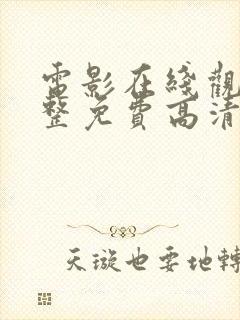 電影在綫觀
整免費高清
天漩也要地轉